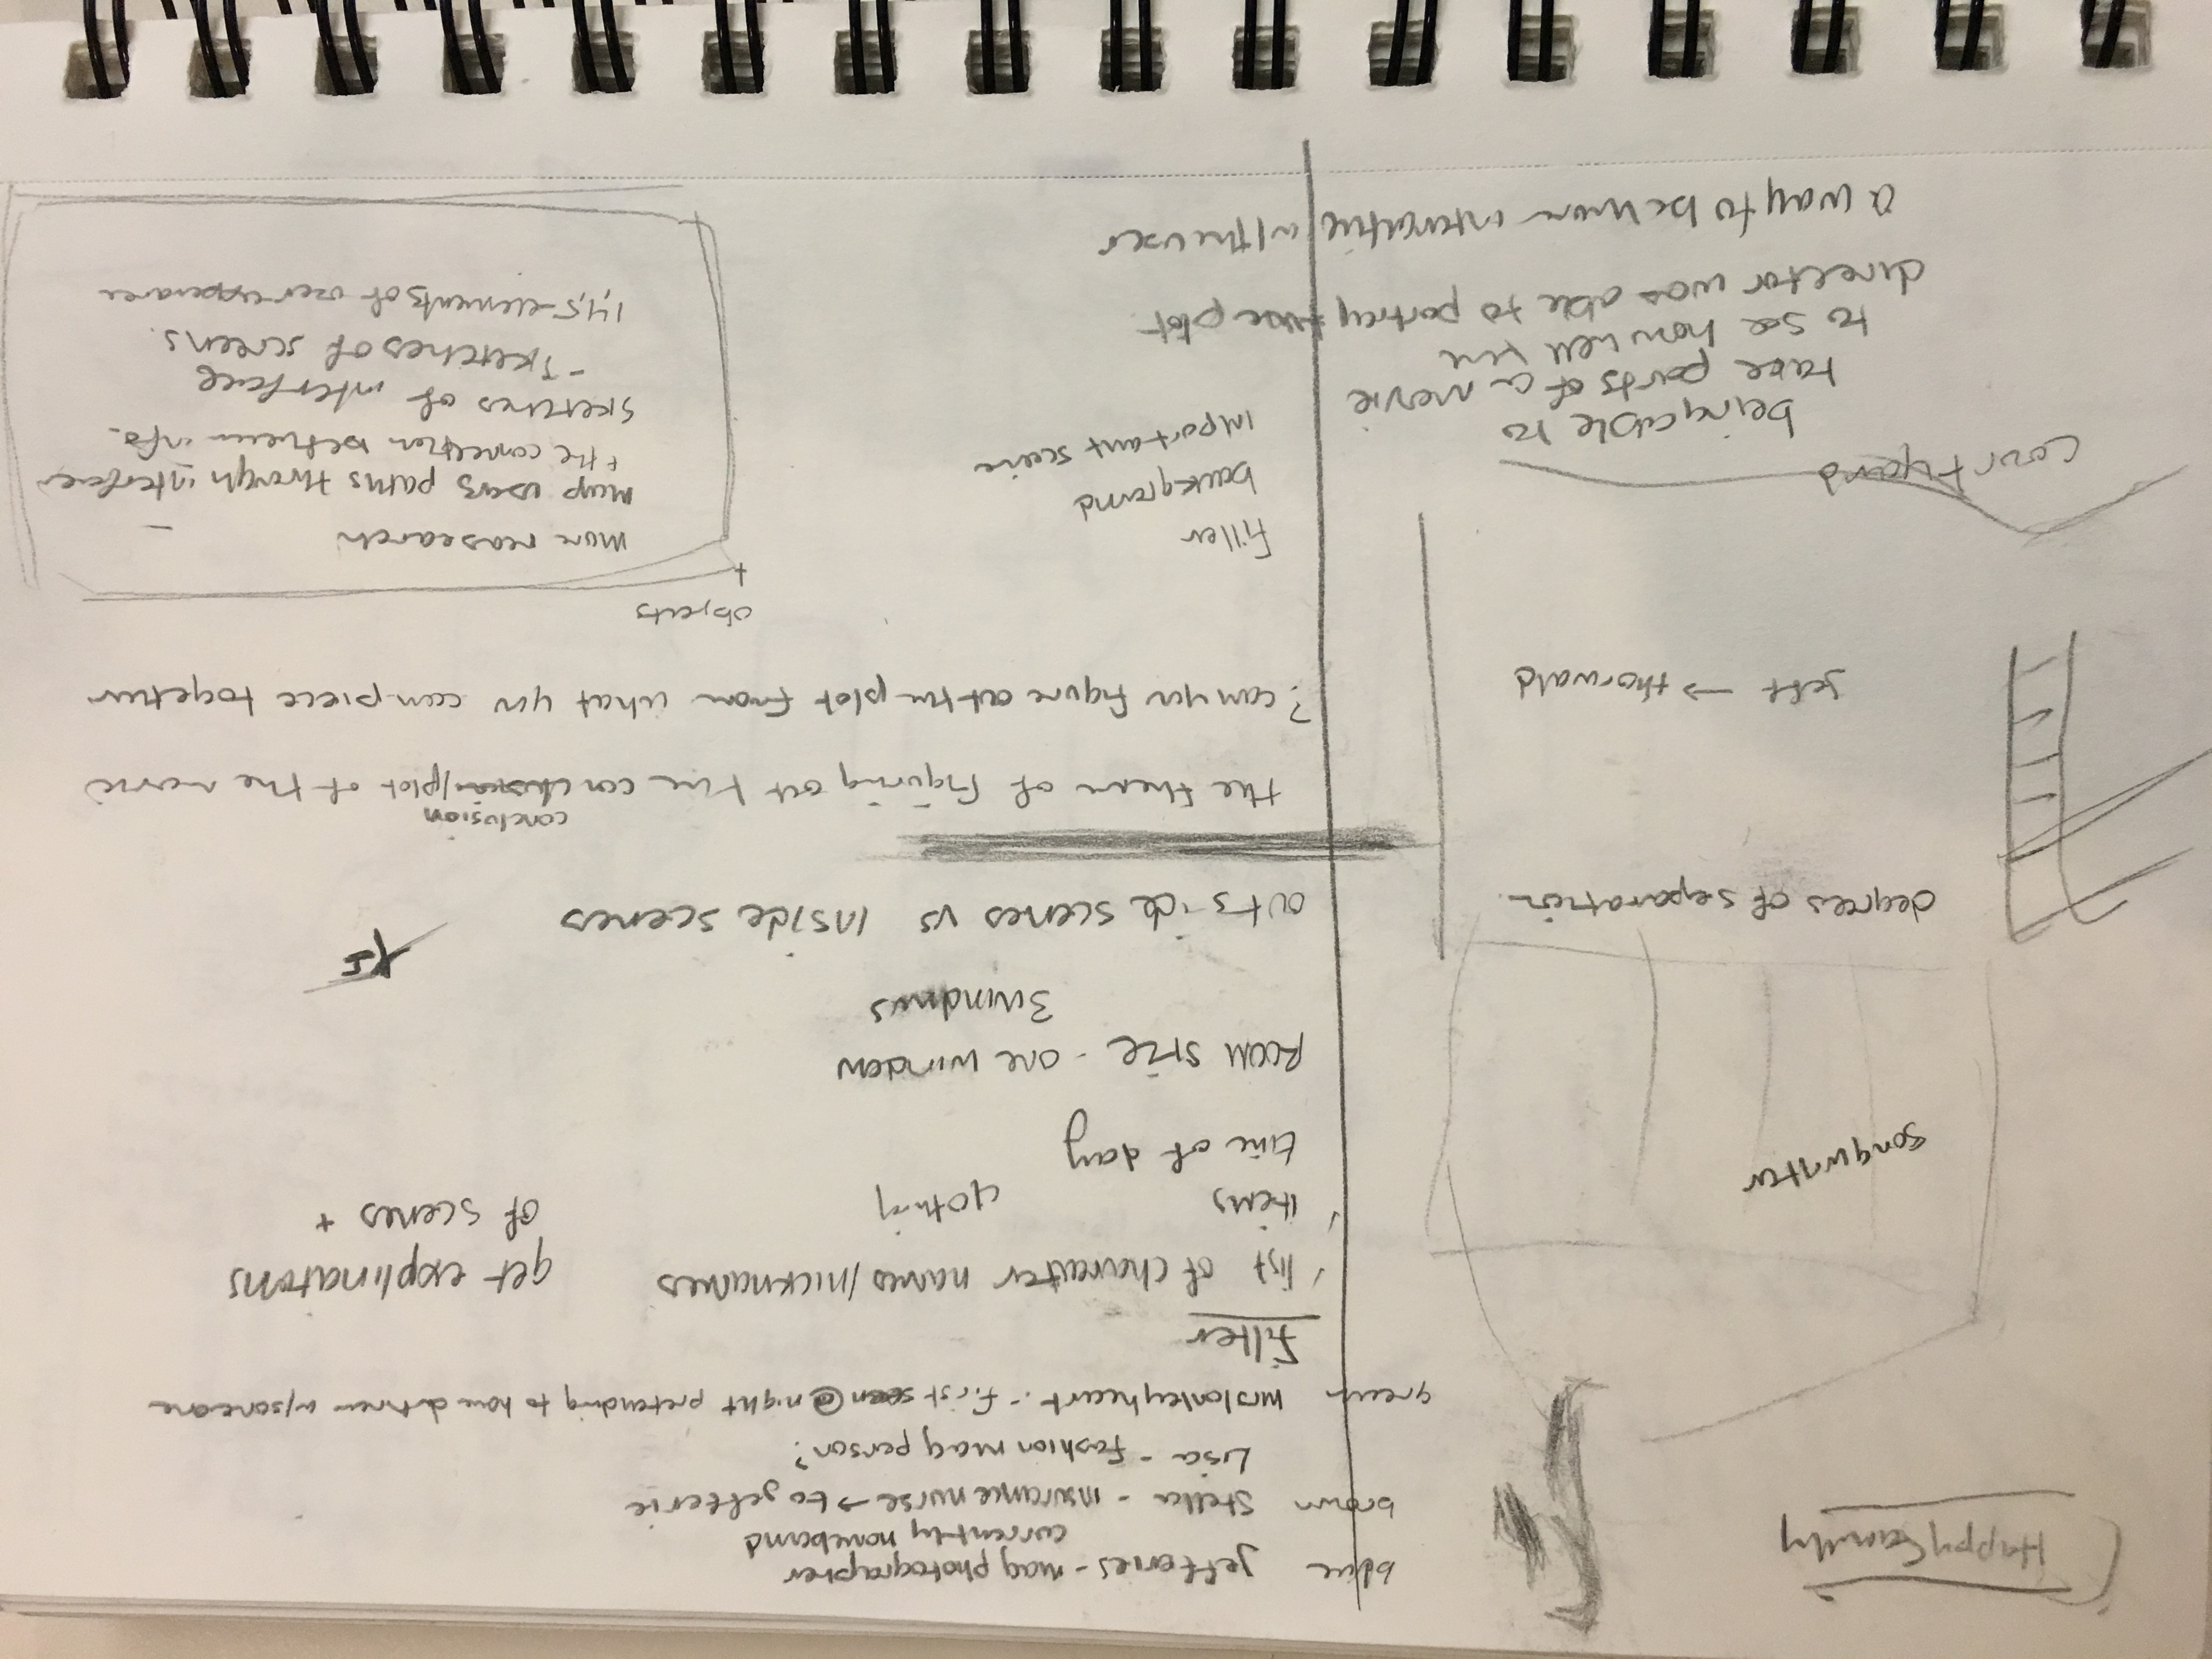 Happy Family
songwriter
degrees of separation.
jeff → thorwald
courtyard
being able to
take parts of a movie
to see how well the
director was able to portray the plot.
a way to be more interactive w/the user
blue jefferies - mag photographer
currently homebound
brown Stella - insurance nurse → to jefferie
Lisa - fashion mag person?
green mrslonleyheart. - first seen @ night pretending to have dinner w/someone
Filter
✓ list of charecter names/nicknames
✓ items clothing
time of day
get explinations
of scenes +
ROOM size - one window
3 windows
outside scenes vs inside scenes
conclusion
the theme of figuring out the /plot of the movie
? can you figure out the plot from what you can piece together
Filler
background
important scene
objects
+
more reasearch
map users paths through interface
+ the connection between info.
sketches of interface
- sketches of screens.
1,4,5-elements of user experience